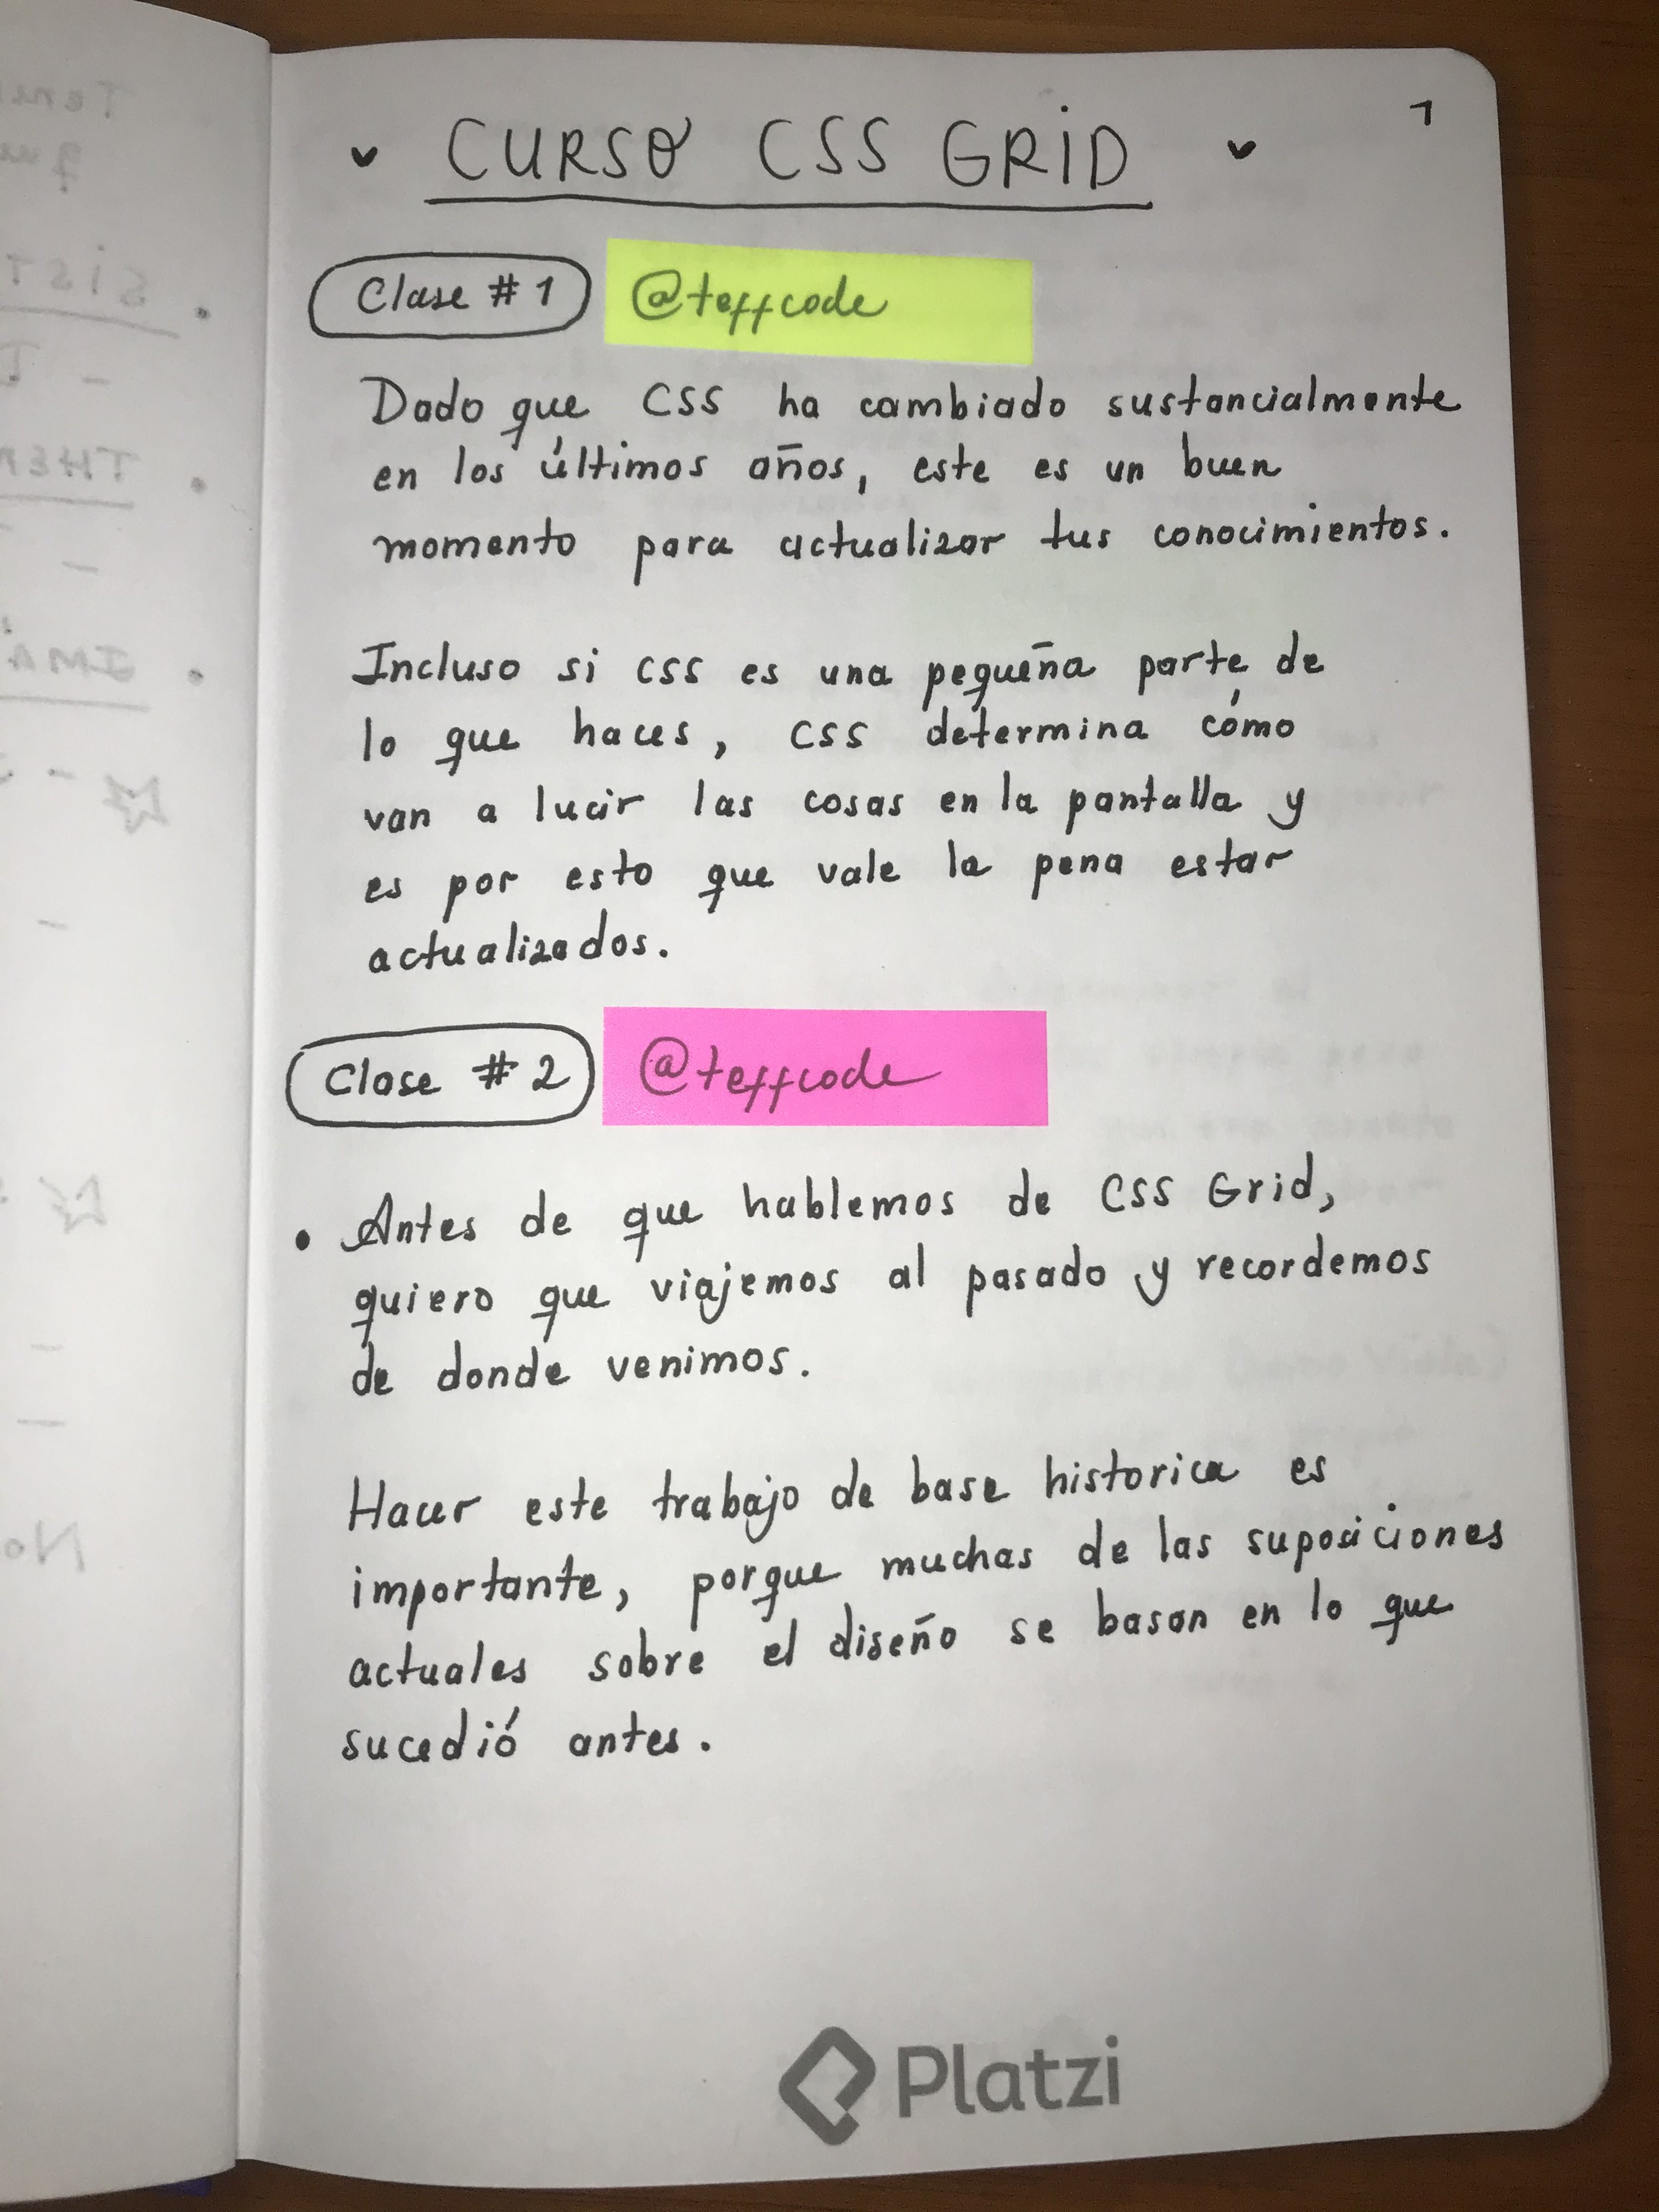 CURSO CSS GRID
1
Clase # 1 @teffcode
Dado que CSS ha cambiado sustancialmente
en los últimos años, este es un buen
momento para actualizar tus conocimientos.
Incluso si CSS es una pequeña parte de
lo que haces, CSS determina cómo
van a lucir las cosas en la pantalla y
es por esto que vale la pena estar
actualizados.
Clase # 2 @teffcode
• Antes de que hablemos de CSS Grid,
quiero que viajemos al pasado y recordemos
de donde venimos.
Hacer este trabajo de base historica es
importante, porque muchas de las suposiciones
actuales sobre el diseño se basan en lo que
sucedió antes.
Platzi